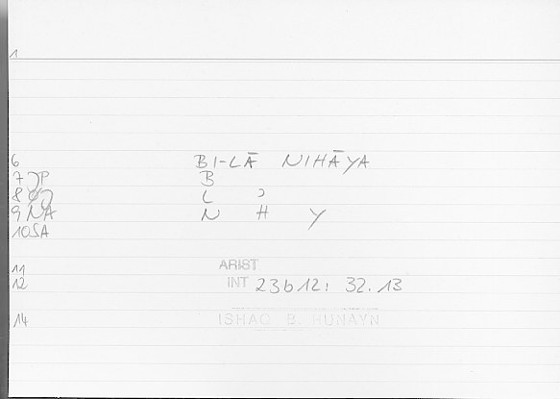 1
6 BI-LĀ NIHĀYA
7 JP B
8 L ɔ
9 NA N H Y
10 SA
11 ARIST
12 INT 23b12: 32.13
14 ISHAQ B. HUNAYN